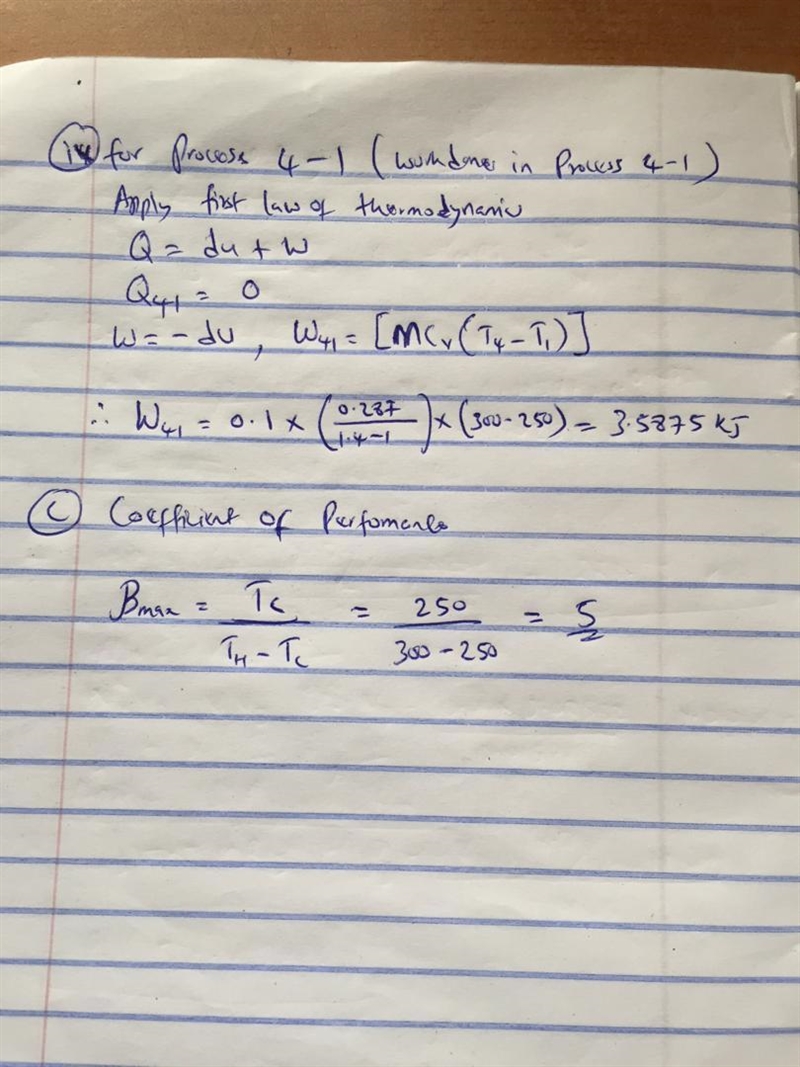 (iv) for Process 4-1 (workdone in Process 4-1)
Apply first law of thermodynamic
Q = du + W
Q41 = 0
W = -dU, W41 = [MCv(T4-T1)]
∴ W41 = 0.1 × (0.287/1.4-1) × (300-250) = 3.5875 KJ
(C) Coefficient of Performance
Bmax = TC/TH-TC = 250/300-250 = 5